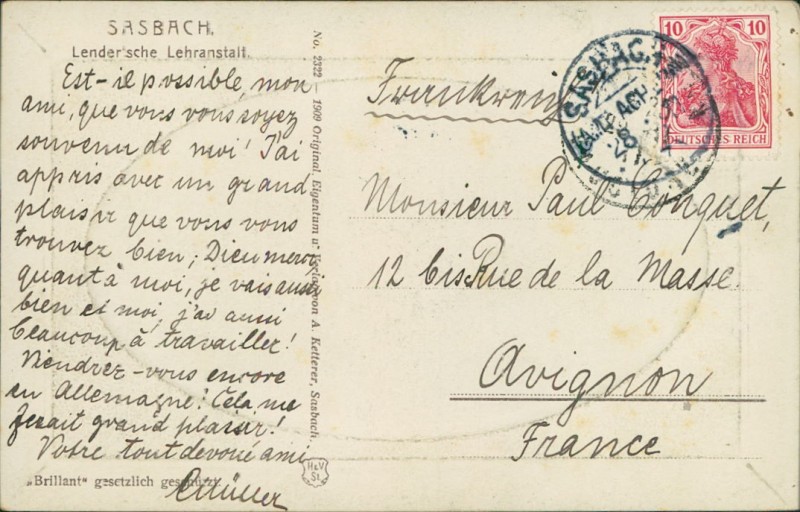 SASBACH.
Lender'sche Lehranstalt.
Est-il possible, mon
ami, que vous vous soyez
souvenu de moi! J'ai
appris avec un grand
plaisir que vous vous
trouvez bien; Dieu merci,
quant à moi, je vais aussi
bien et moi, j'ai aussi
beaucoup à travailler!
Viendrez-vous encore
en Allemagne? Cela me
ferait grand plaisir!
Votre tout dévoué ami
Müller
„Brillant“ gesetzlich geschützt.
No. 2322 1909 Original, Eigentum u. Verlag von A. Ketterer, Sasbach.
H&V
St.
Frankreich
SASBACH
10 10
DEUTSCHES REICH
Monsieur Paul Conquet,
12 bis Rue de la Masse.
Avignon
France